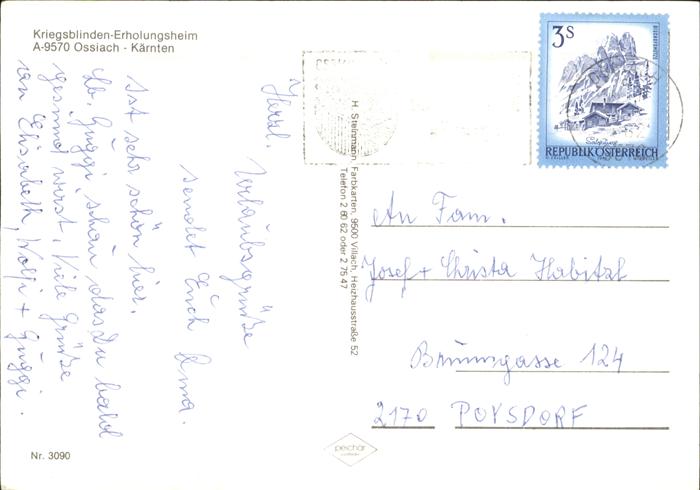 Kriegsblinden-Erholungsheim
A-9570 Ossiach - Kärnten
Herzl. Urlaubsgrüße
sendet Euch Oma.
Ist sehr schön hier.
Lb. Guggi schau das Du bald
gesund wirst. Viele Grüße
an Elisabeth, Wolfi + Guggi.
H. Steinmann, Farbkarten, 9500 Villach, Heizhausstraße 52
Telefon 2 60 62 oder 2 75 47
3S
REPUBLIK ÖSTERREICH
An Fam.
Josef + Christa Habitzl
Brunngasse 124
2170 POYSDORF
Nr. 3090
peichar